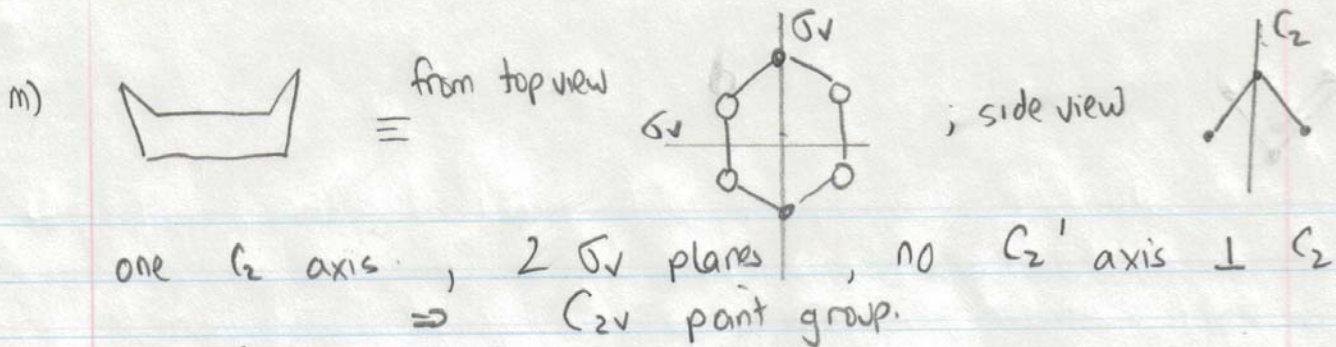 m) ≡ from top view σv σv ; side view C₂
one C₂ axis , 2 σv planes , no C₂' axis ⊥ C₂
⇒ C₂v point group.